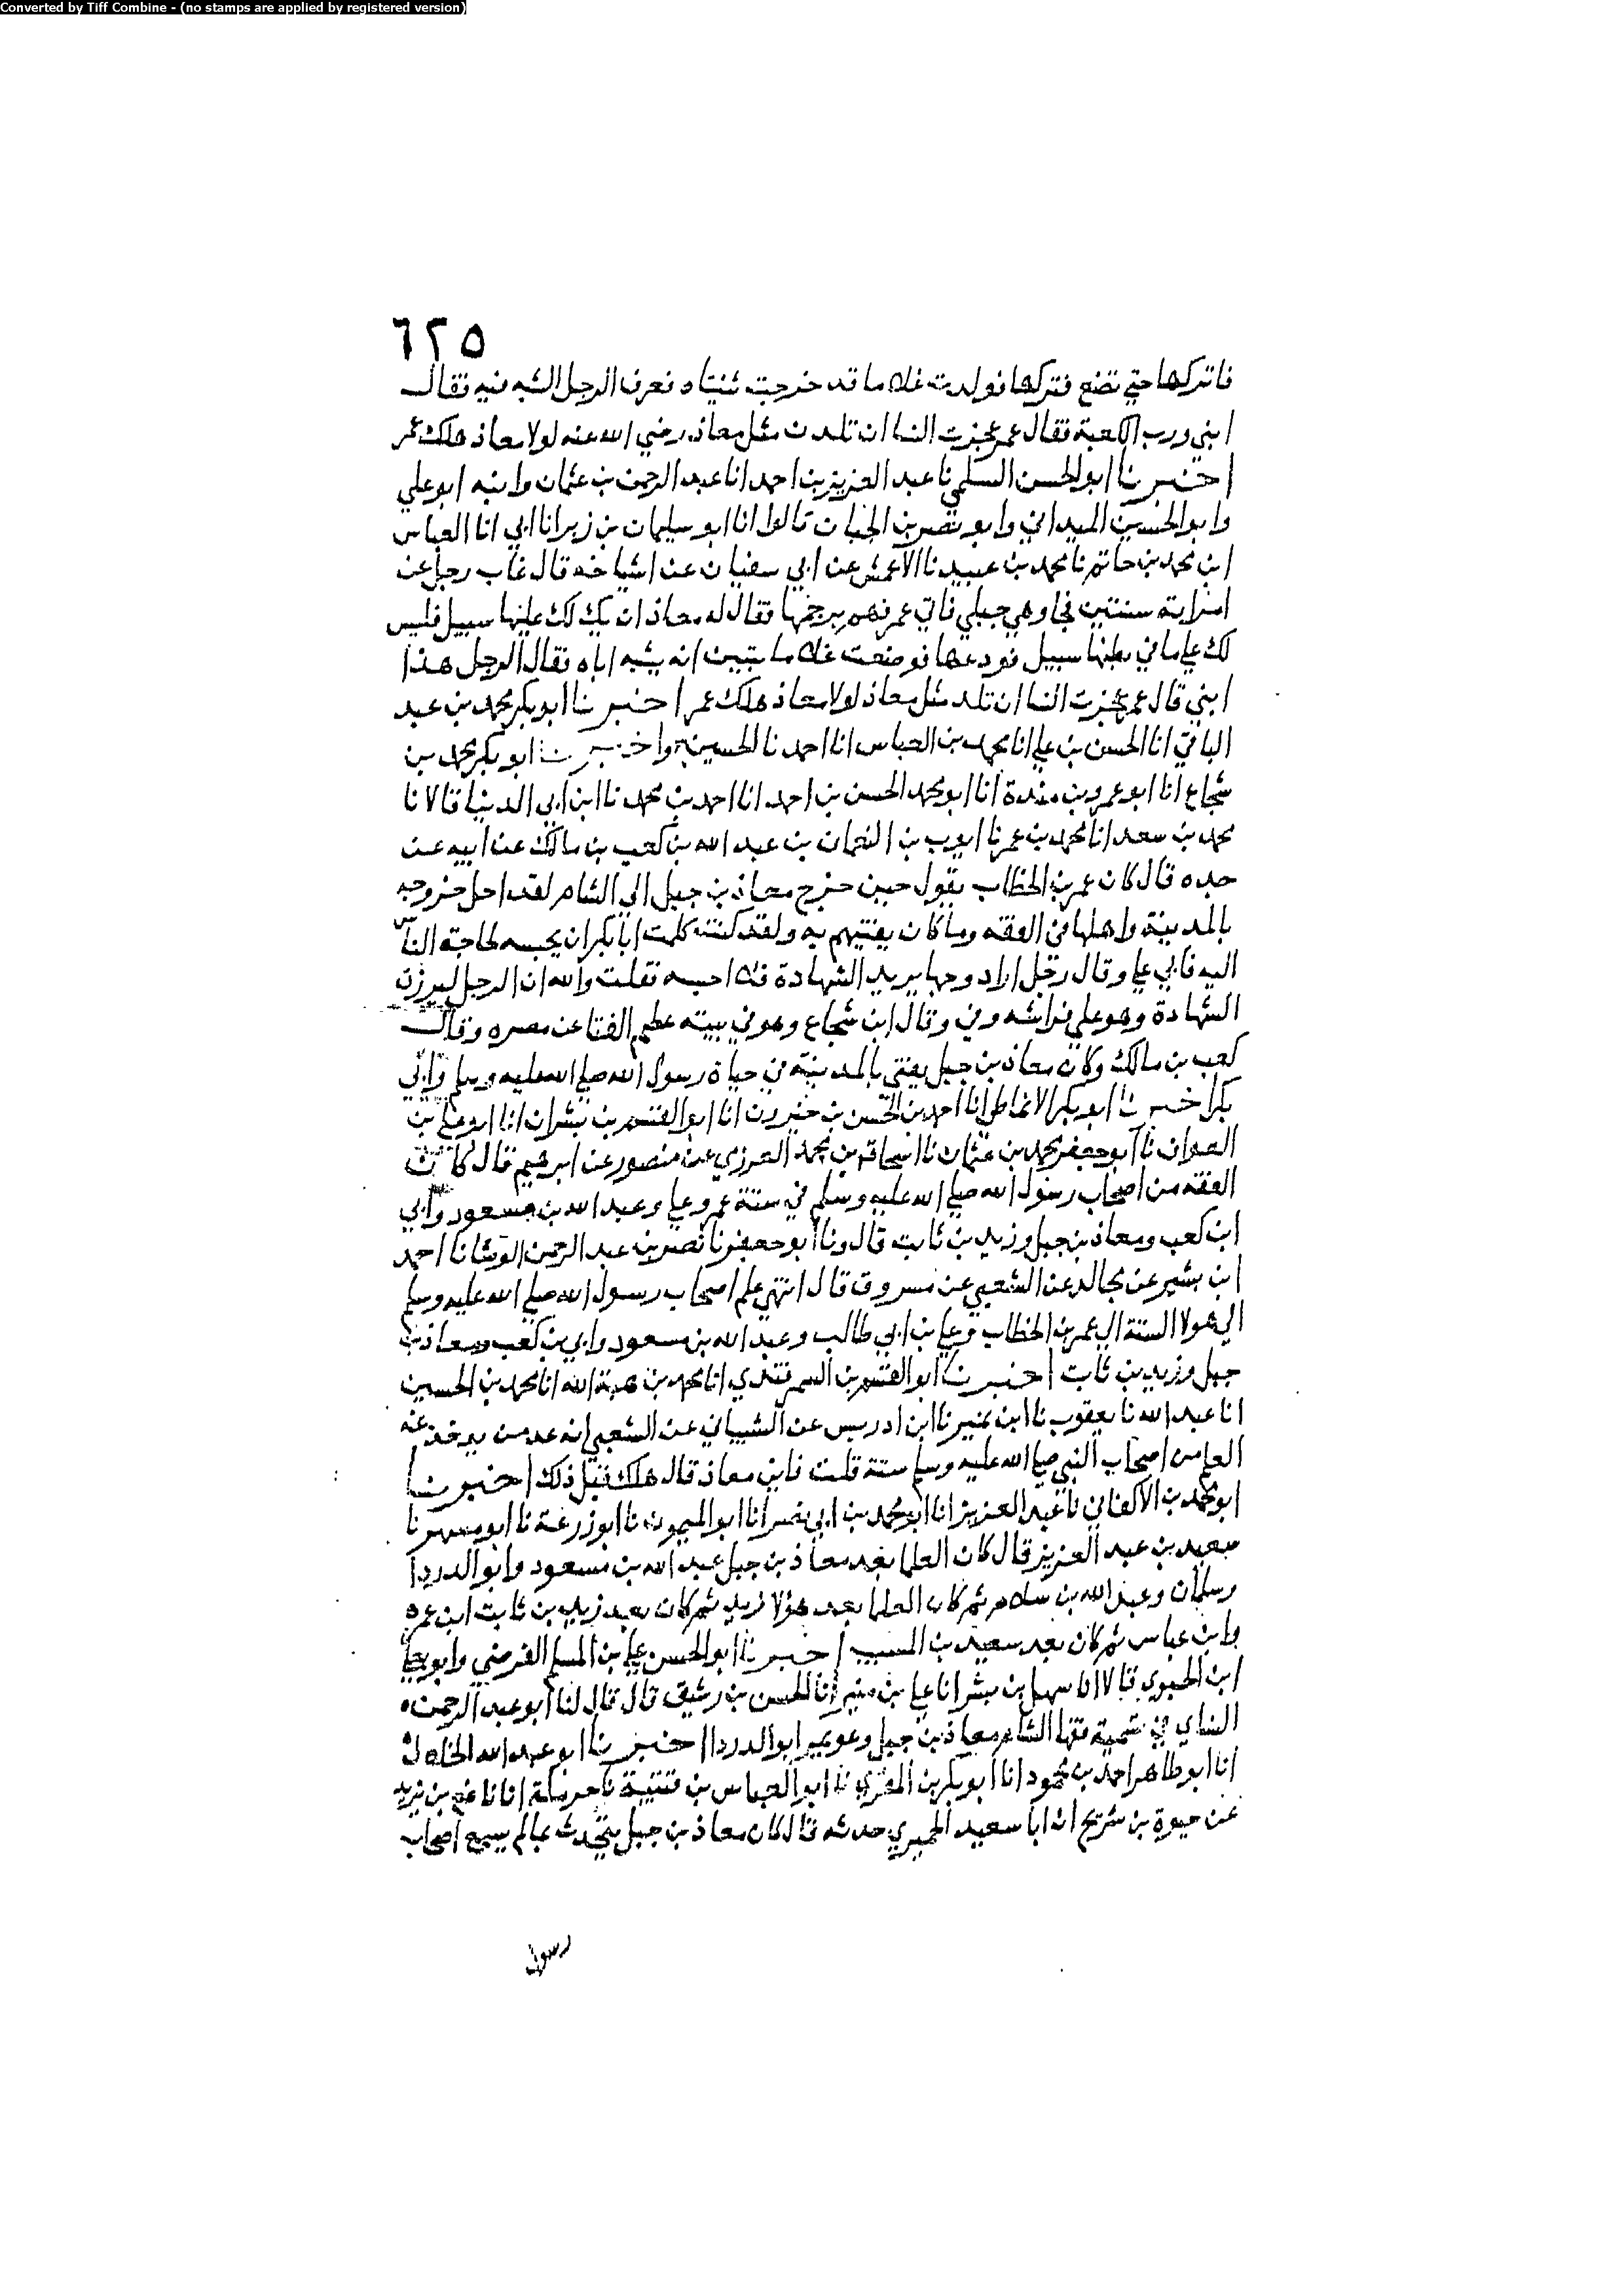 Converted by Tiff Combine - (no stamps are applied by registered version)
٦٢٥
فاتركها حتى تضع فتركها فولدت غلاما قد خرجت ثنيتاه فعرف الرجل الشبه فيه فقال
ابني ورب الكعبة فقال عمر عجزت النسا ان تلدن مثل معاذ رضي الله عنه لولا معاذ هلك عمر
اخبرنا ابو الحسن السلمي نا عبد العزيز بن احمد انا عبد الرحمن بن عثمان وابنه ابو علي
وابو الحسين الميداني وابو نصر بن الجبان قالوا انا ابو سليمان بن زبر انا ابي انا العباس
ابن محمد بن حاتم نا محمد بن عبيد نا الاعمش عن ابي سفيان عن اشياخه قال غاب رجل عن
امرايته سنتين فجا وهي حبلي فاتي عمر فهم برجمها فقال له معاذ ان يك لك عليها سبيل فليس
لك علي ما في بطنها سبيل فودعها فوضعت غلاما يتبين انه يشبه اباه فقال الرجل هذا
ابني قال عمر عجزت النسا ان تلد مثل معاذ لولا معاذ هلك عمر اخبرنا ابو بكر محمد بن عبد
الباقي انا الحسن بن علي انا محمد بن العباس انا احمد نا الحسين ح واخبرنا ابو بكر محمد بن
شجاع انا ابو عمرو بن مندة انا ابو محمد الحسن بن احمد انا احمد بن محمد نا ابن ابي الدنيا قالا نا
محمد بن سعد انا محمد بن عمر نا ايوب بن النعمان بن عبد الله بن كعب بن مالك عن ابيه عن
جده قال كان عمر بن الخطاب يقول حين خرج معاذ بن جبل الي الشام لقد اخل خروجه
بالمدينة واهلها في الفقه وما كان يفتيهم به ولقد كنت كلمت ابا بكر ان يحبسه لحاجة الناس
اليه فابي علي وقال رجل اراد وجها يريد الشهادة فلا احبسه فقلت والله ان الرجل ليرزق
الشهادة وهو علي فراشه وفي وقال ابن شجاع وهو في بيته عظيم الغنا عن مصره وقال
كعب بن مالك وكان معاذ بن جبل يفتي بالمدينة في حياة رسول الله صلي الله عليه وسلم وابي
بكر اخبرنا ابو بكر الانماطي انا احمد بن الحسن بن خيرون انا ابو القسم بن بشران انا ابو علي بن
الصواف نا ابو جعفر محمد بن عثمان نا اسحاق بن محمد العرزمي عن منصور عن ابرهيم قال كان
الفقه من اصحاب رسول الله صلي الله عليه وسلم في ستة عمر وعلي وعبد الله بن مسعود وابي
ابن كعب ومعاذ بن جبل وزيد بن ثابت قال ونا ابو جعفر نا نصر بن عبد الرحمن الوشا نا احمد
ابن بشير عن مجالد عن الشعبي عن مسروق قال انتهي علم اصحاب رسول الله صلي الله عليه وسلم
الي هولا الستة الي عمر بن الخطاب وعلي بن ابي طالب وعبد الله بن مسعود وابي بن كعب ومعاذ بن
جبل وزيد بن ثابت اخبرنا ابو القسم بن السمرقندي انا محمد بن هبة الله انا محمد بن الحسين
انا عبد الله نا يعقوب نا ابن نمير نا ابن ادريس عن الشيباني عن الشعبي انه عد من يوخذ عنه
العلم من اصحاب النبي صلي الله عليه وسلم ستة قلت فاين معاذ قال هلك قبل ذلك اخبرنا
ابو محمد بن الاكفاني نا عبد العزيز انا ابو محمد بن ابي نصر انا ابو الميمون نا ابو زرعة نا ابو مسهر نا
سعيد بن عبد العزيز قال كان العلما بعد معاذ بن جبل عبد الله بن مسعود وابو الدردا
وسلمان وعبد الله بن سلام ثم كان العلما بعد هؤلا زيد ثم كان بعد زيد بن ثابت ابن عمر
وابن عباس ثم كان بعد سعيد بن المسيب اخبرنا ابو الحسن علي بن المسلم الفرضي وابو يعلي
ابن الحبوبي قالا انا سهل بن بشر انا علي بن منير انا الحسن بن رشيق قال قال لنا ابو عبد الرحمن
النساي في تسمية فقها الشام معاذ بن جبل وعويمر ابو الدردا اخبرنا ابو عبد الله الخلال
انا ابو طاهر احمد بن محمود انا ابو بكر بن المقري نا ابو العباس بن قتيبة نا حرملة انا نافع بن يزيد
عن حيوة بن شريح ان ابا سعيد الحميري حدثه قال كان معاذ بن جبل يتحدث بمالم يسمع اصحاب
رسول